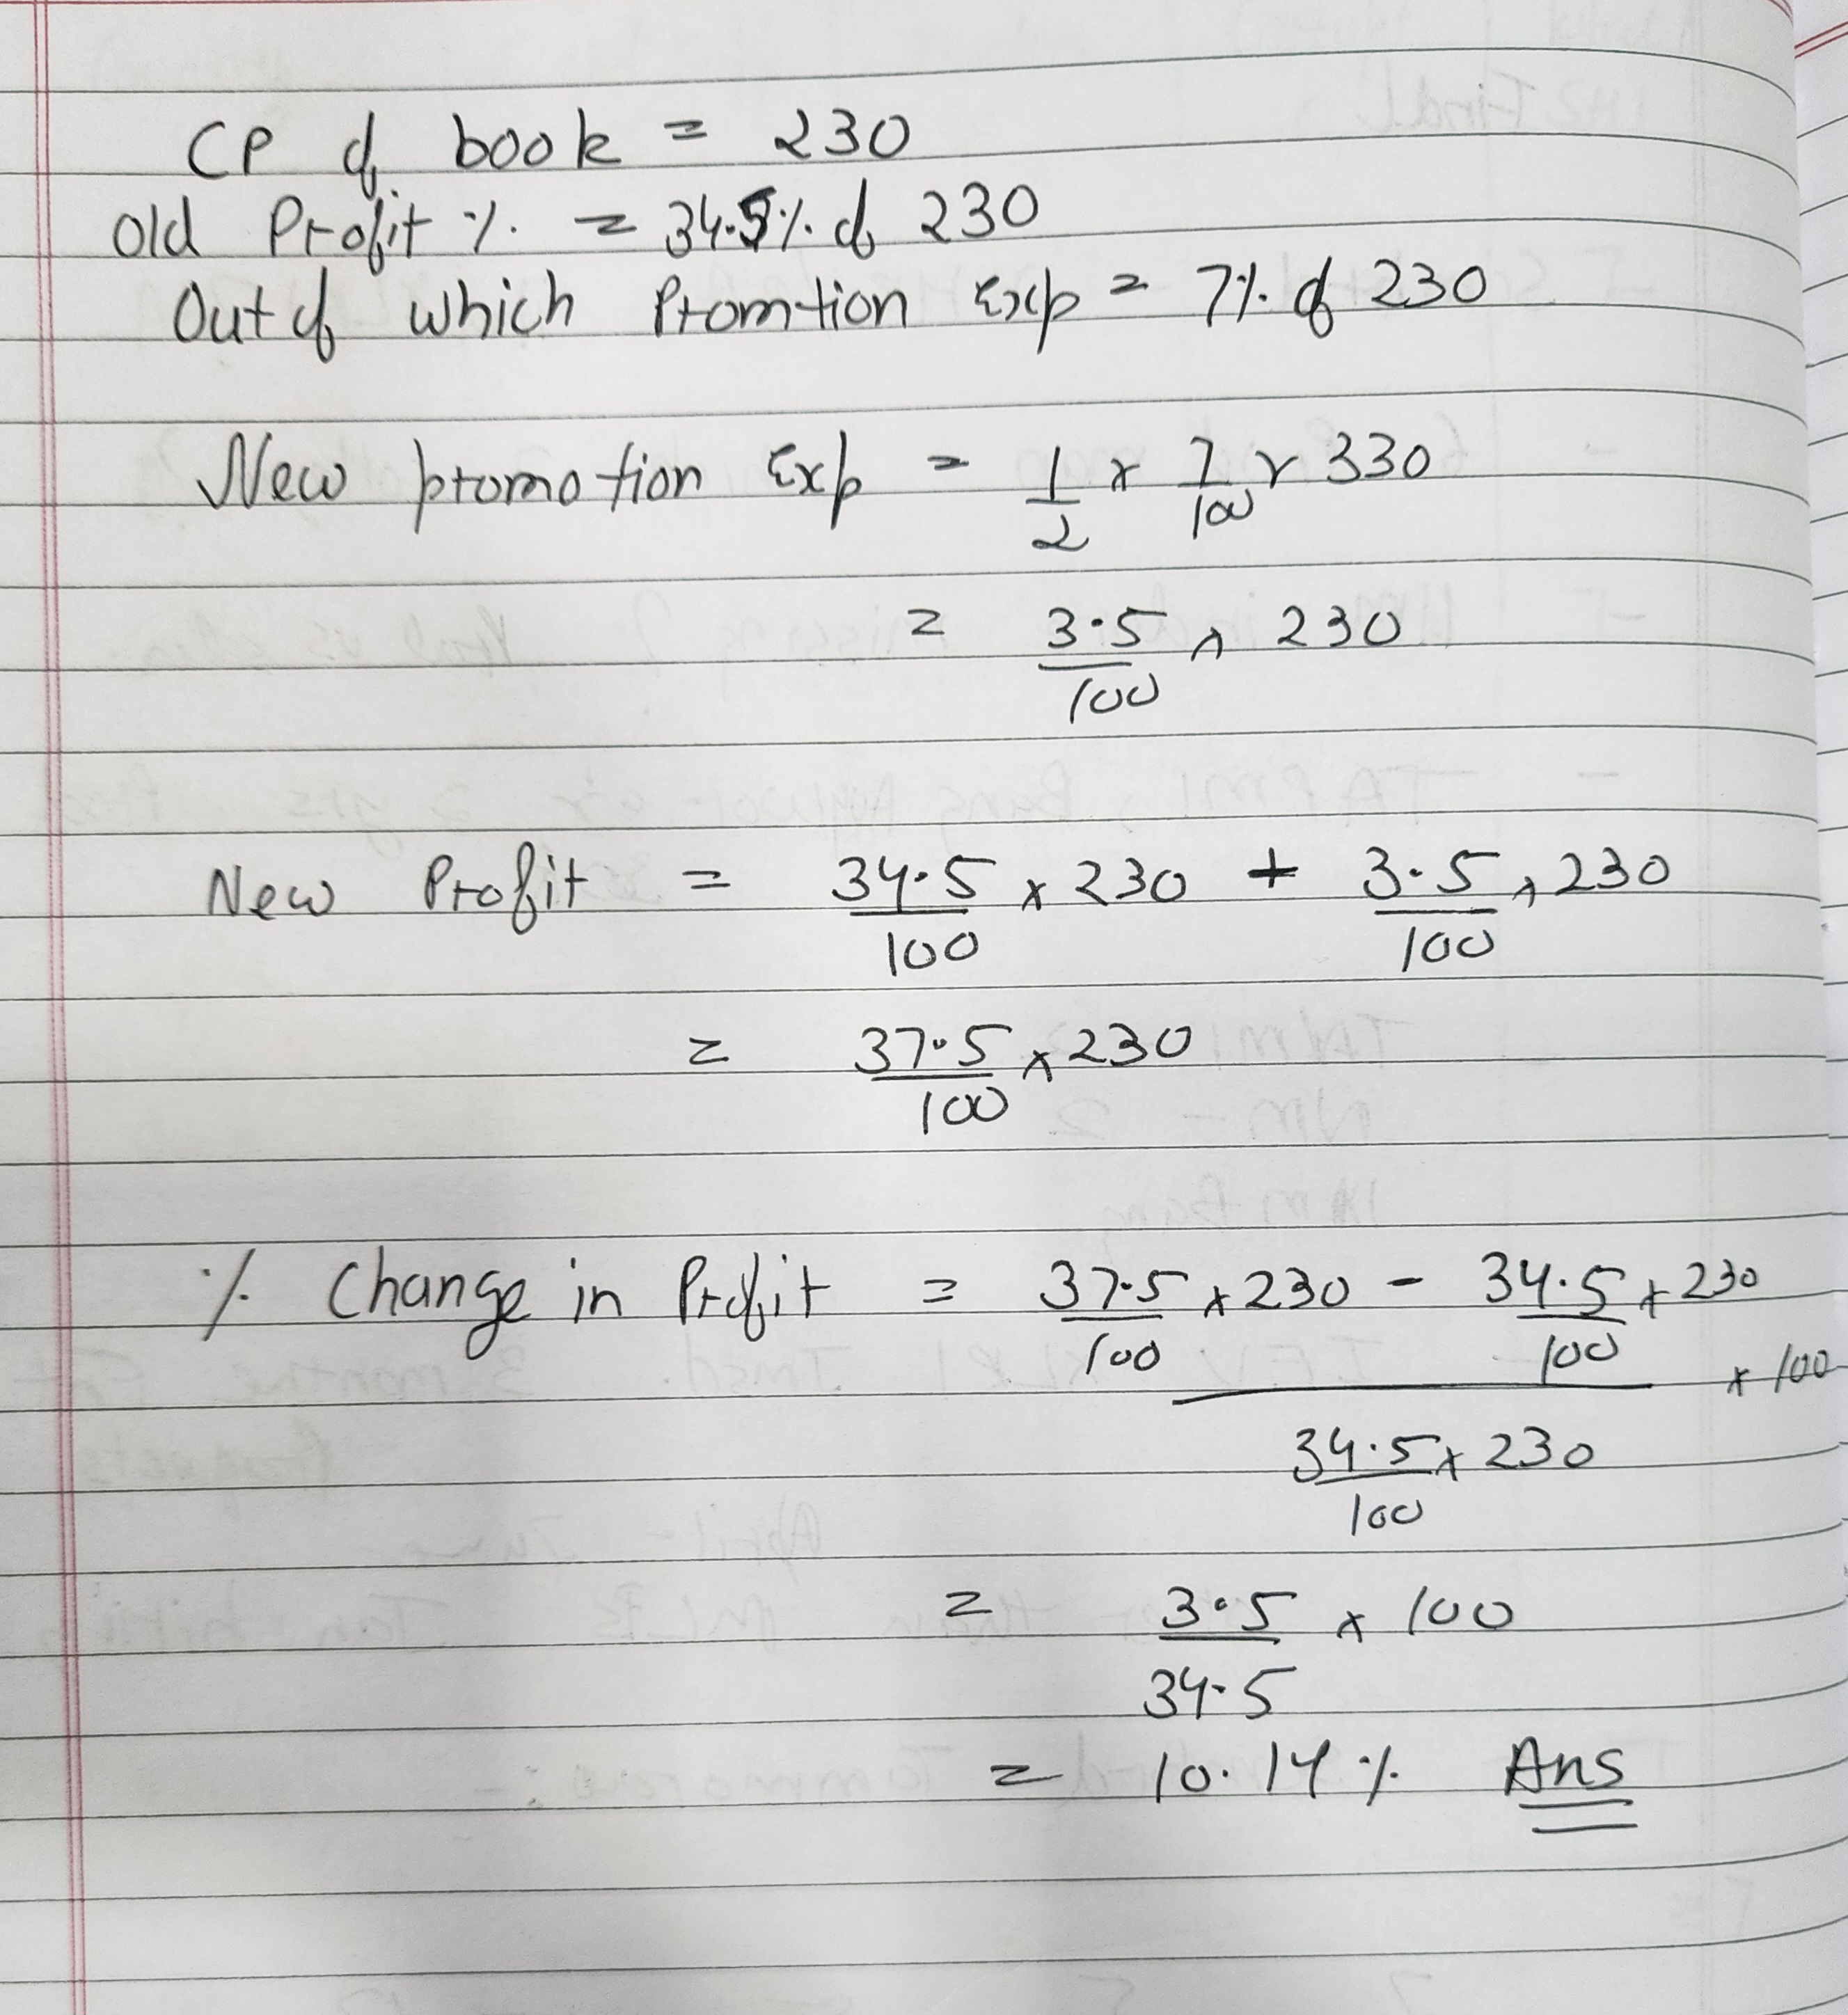 CP of book = 230
Old Profit % = 34.5% of 230
Out of which Promtion Exp = 7% of 230
New promotion Exp = 1/2 x 7/100 x 330
= 3.5/100 x 230
New Profit = 34.5/100 x 230 + 3.5/100 x 230
= 37.5/100 x 230
% Change in Profit = (37.5/100 x 230 - 34.5/100 x 230) / (34.5/100 x 230) x 100
= 3.5/34.5 x 100
= 10.14% Ans